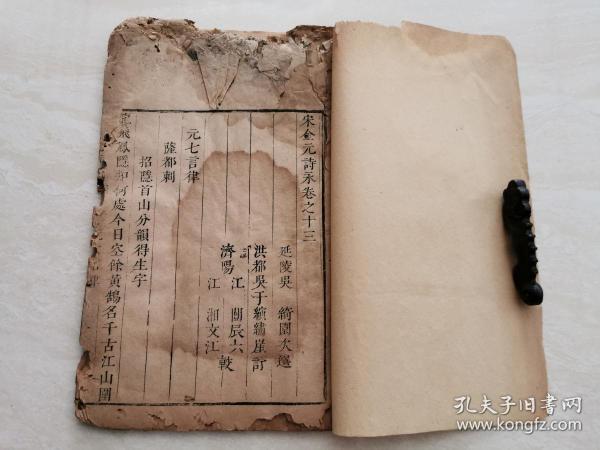 宋金元詩永卷之十三
延陵吳 綺園次選
洪都吳于績繡崖訂
濟陽 江 闓辰六
江 湘文江 較
元七言律
薩都剌
招隱首山分韻得生字
飛鳳隱知何處今日空餘黃鶴名千古江山圍
孔夫子旧书网
www.kongfz.com